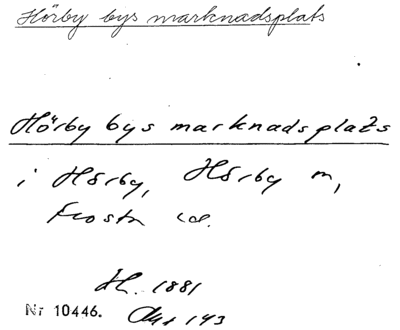 Hörby bys marknadsplats
Hörby bys marknadsplats
i Hörby, Hörby m,
Frosta
H. 1881
Nr 10446. 143